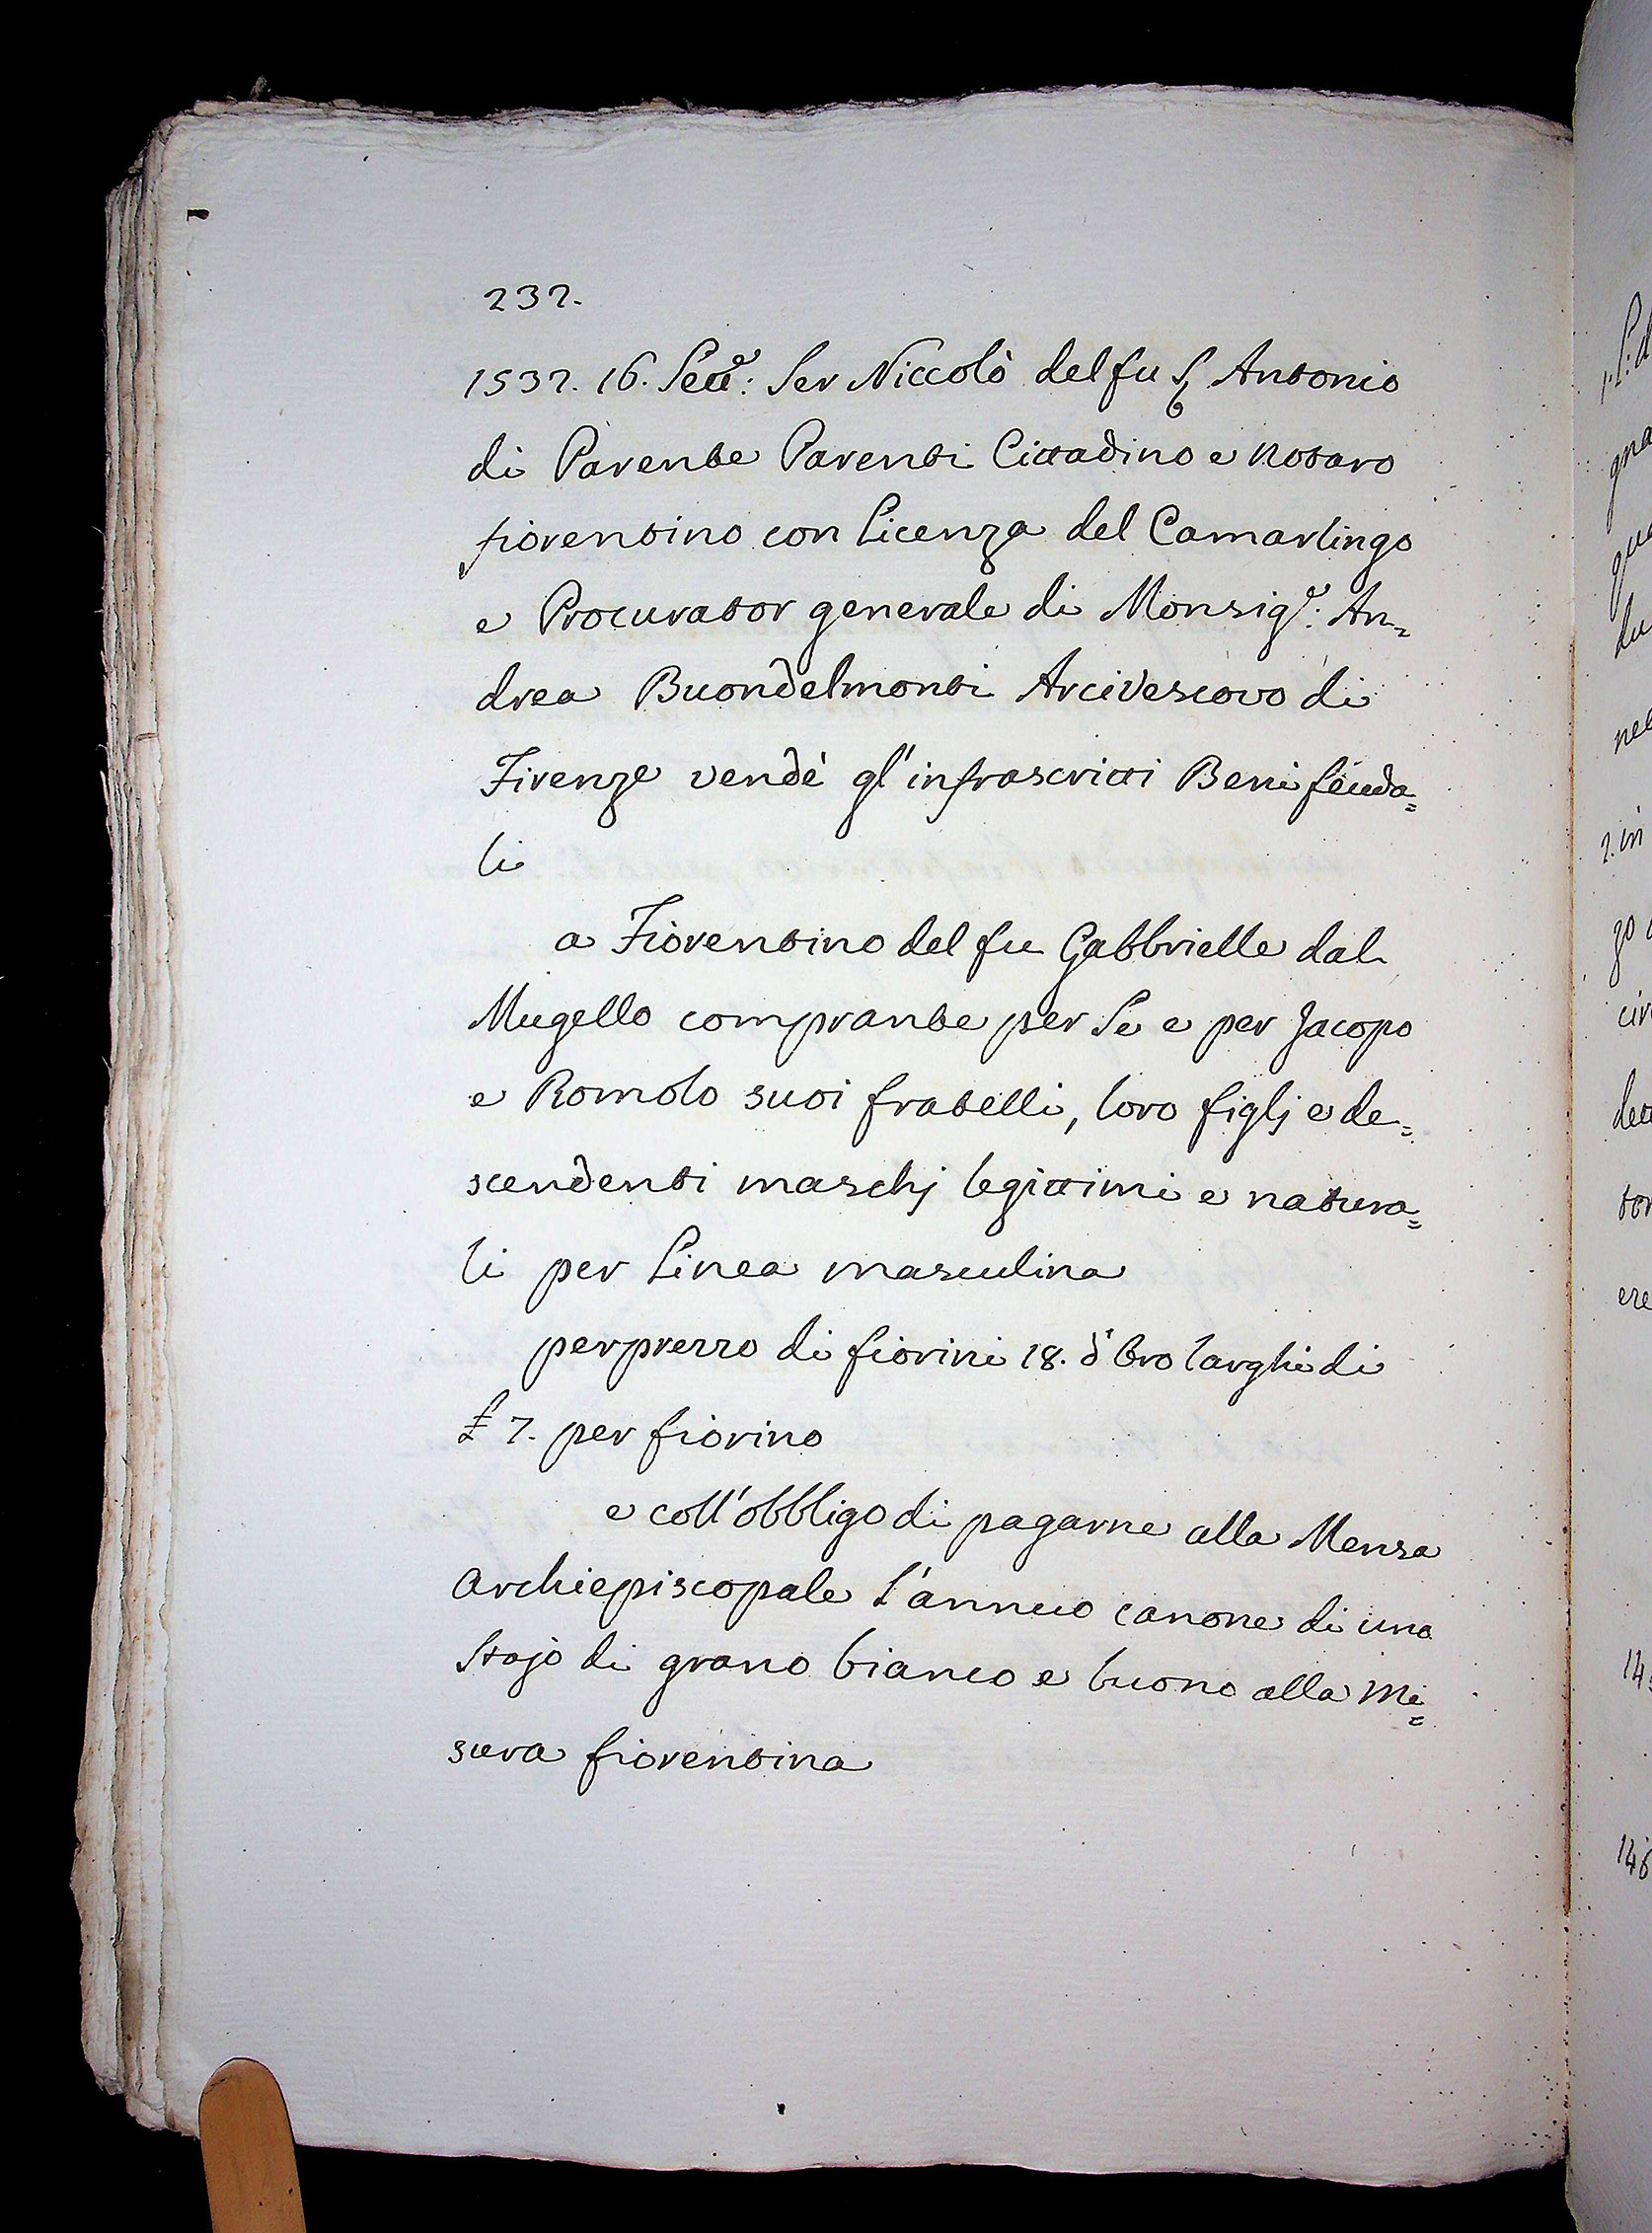 232.
1532. 16. Sett.e: Ser Niccolò del fu S. Antonio
di Parente Parenti Cittadino e Notaro
fiorentino con Licenza del Camarlingo
e Procurator generale di Monsig.r: An=
drea Buondelmonti Arcivescovo di
Firenze vendè gl'infrascritti Beni feuda=
li
a Fiorentino del fu Gabbrielle dal
Mugello comprante per Se e per Jacopo
e Romolo suoi fratelli, loro figlj e de=
scendenti maschj legittimi e natura=
li per Linea masculina
per prezzo di fiorini 18. d'Oro larghi di
£ 7. per fiorino
e coll'obbligo di pagarne alla Mensa
Archiepiscopale l'annuo canone di uno
Stajo di grano bianco e buono alla Mi=
sura fiorentina